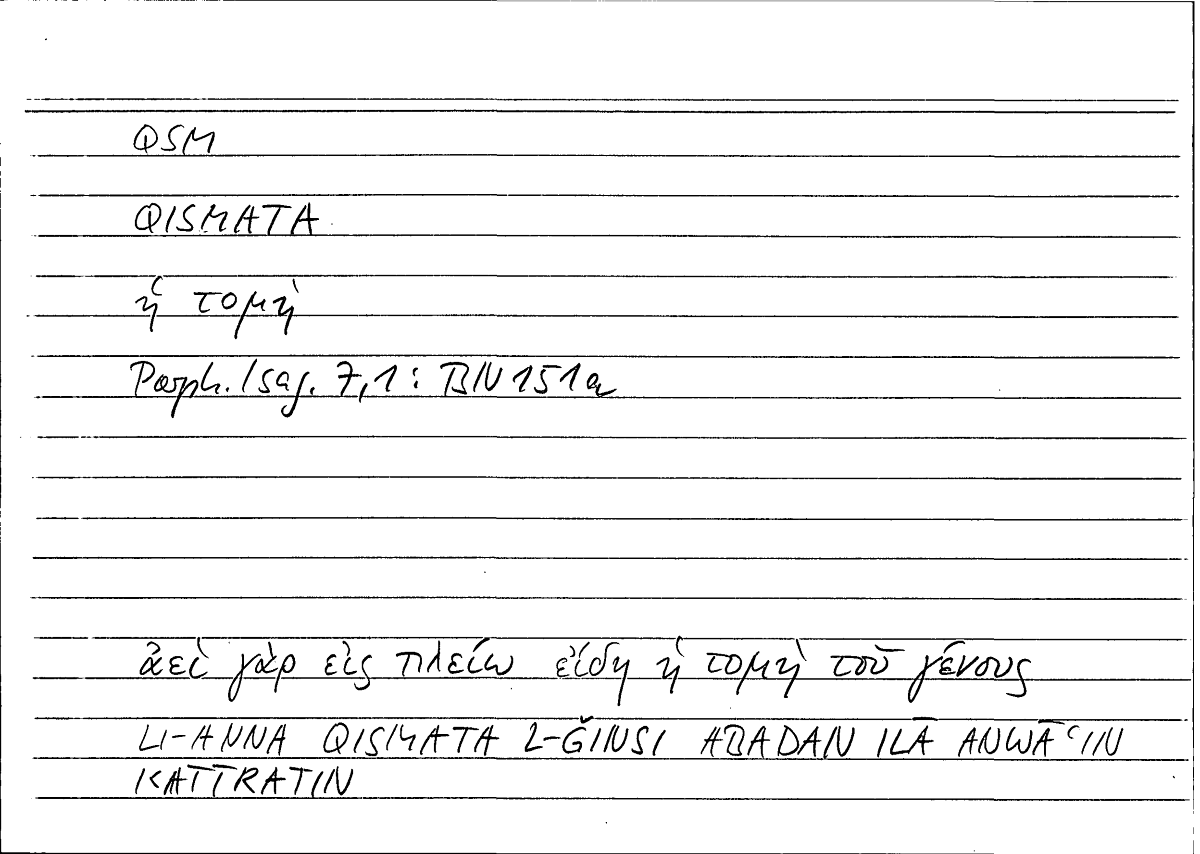 QSM
QISMATA
ἡ τομὴ
Porph. Isag. 7,1: BN 151a
ἀεὶ γὰρ εἰς πλείω εἴδη ἡ τομὴ τοῦ γένους
LI-ANNA QISMATA L-ǦINSI ABADAN ILĀ ANWĀʿIN
KAṮĪRATIN